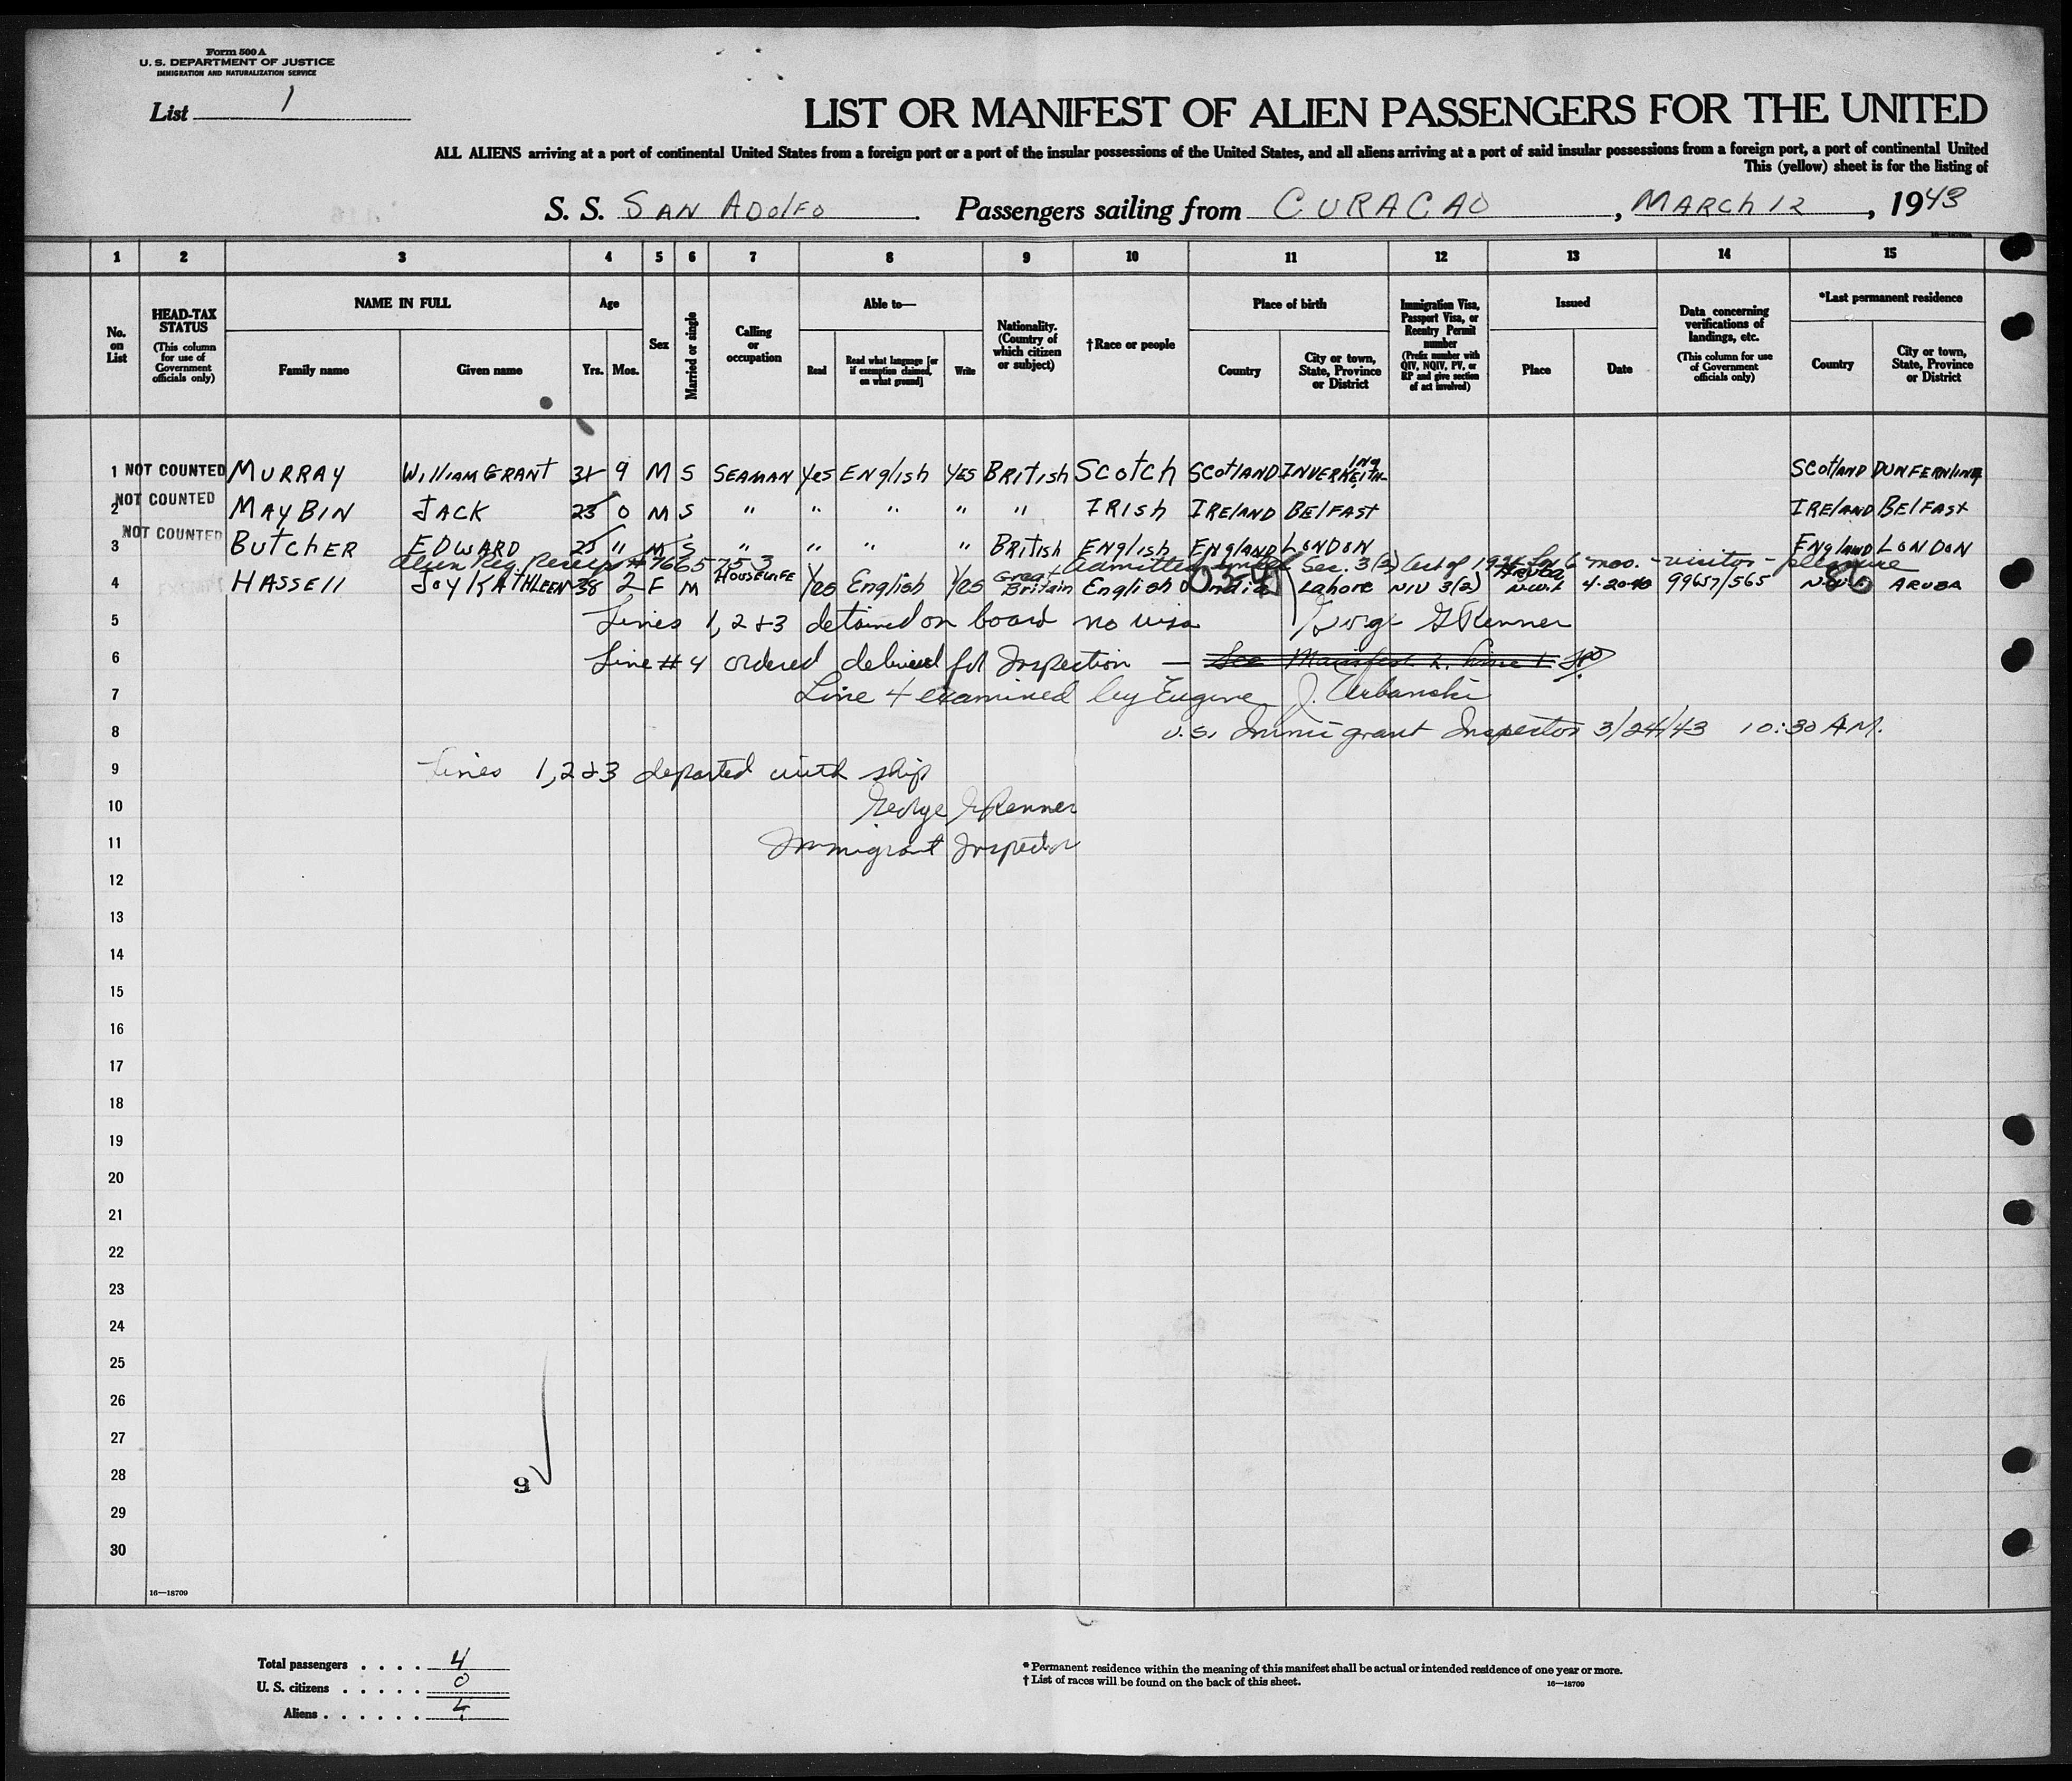 Form 500 A
U. S. DEPARTMENT OF JUSTICE
IMMIGRATION AND NATURALIZATION SERVICE
List 1
LIST OR MANIFEST OF ALIEN PASSENGERS FOR THE UNITED
ALL ALIENS arriving at a port of continental United States from a foreign port or a port of the insular possessions of the United States, and all aliens arriving at a port of said insular possessions from a foreign port, a port of continental United
This (yellow) sheet is for the listing of
S. S. SAN ADOLFO . Passengers sailing from CURACAO , MARCH 12 , 1943
1 2 3 4 5 6 7 8 9 10 11 12 13 14 15
No. on List
HEAD-TAX STATUS (This column for use of Government officials only)
NAME IN FULL
Family name
Given name
Age
Yrs.
Mos.
Sex
Married or single
Calling or occupation
Able to—
Read
Read what language [or if exemption claimed, on what ground]
Write
Nationality. (Country of which citizen or subject)
†Race or people
Place of birth
Country
City or town, State, Province or District
Immigration Visa, Passport Visa, or Reentry Permit number (Prefix number with QIV, NQIV, PV, or RP and give section of act involved)
Issued
Place
Date
Data concerning verifications of landings, etc. (This column for use of Government officials only)
*Last permanent residence
Country
City or town, State, Province or District
1 NOT COUNTED MURRAY WILLIAM GRANT 31 9 M S SEAMAN Yes ENGLISH YES BRITISH SCOTCH SCOTLAND INVERKEITHING SCOTLAND DUNFERMLINE
2 NOT COUNTED MAYBIN JACK 23 0 M S " " " " " IRISH IRELAND BELFAST IRELAND BELFAST
3 NOT COUNTED BUTCHER EDWARD 25 " M S " " " " BRITISH ENGLISH ENGLAND LONDON ENGLAND LONDON
Alien Reg. Receipt # 7665753 Admitted under Sec. 3(2) Act of 1924 for 6 mos. - visitor - pleasure
4 HASSELL JOY KATHLEEN 38 2 F M HOUSEWIFE Yes English Yes Great Britain English India Lahore NIV 3(2) Aruba N.W.I. 4-20-40 99657/565 N.W.I. ARUBA
5 Lines 1, 2 & 3 detained on board no visa George G Renner
6 Line # 4 ordered delivered for Inspection — See Manifest 2, Line 1
7 Line 4 examined by Eugene J. Urbanski
8 U.S. Immigrant Inspector 3/24/43 10:30 AM.
9 Lines 1, 2 & 3 departed with ship
10 George G Renner
11 Immigrant Inspector
12
13
14
15
16
17
18
19
20
21
22
23
24
25
26
27
28
9
29
30
16—18709
Total passengers . . . . 4
U. S. citizens . . . . . 0
Aliens . . . . . . 4
* Permanent residence within the meaning of this manifest shall be actual or intended residence of one year or more.
† List of races will be found on the back of this sheet.
16—18709